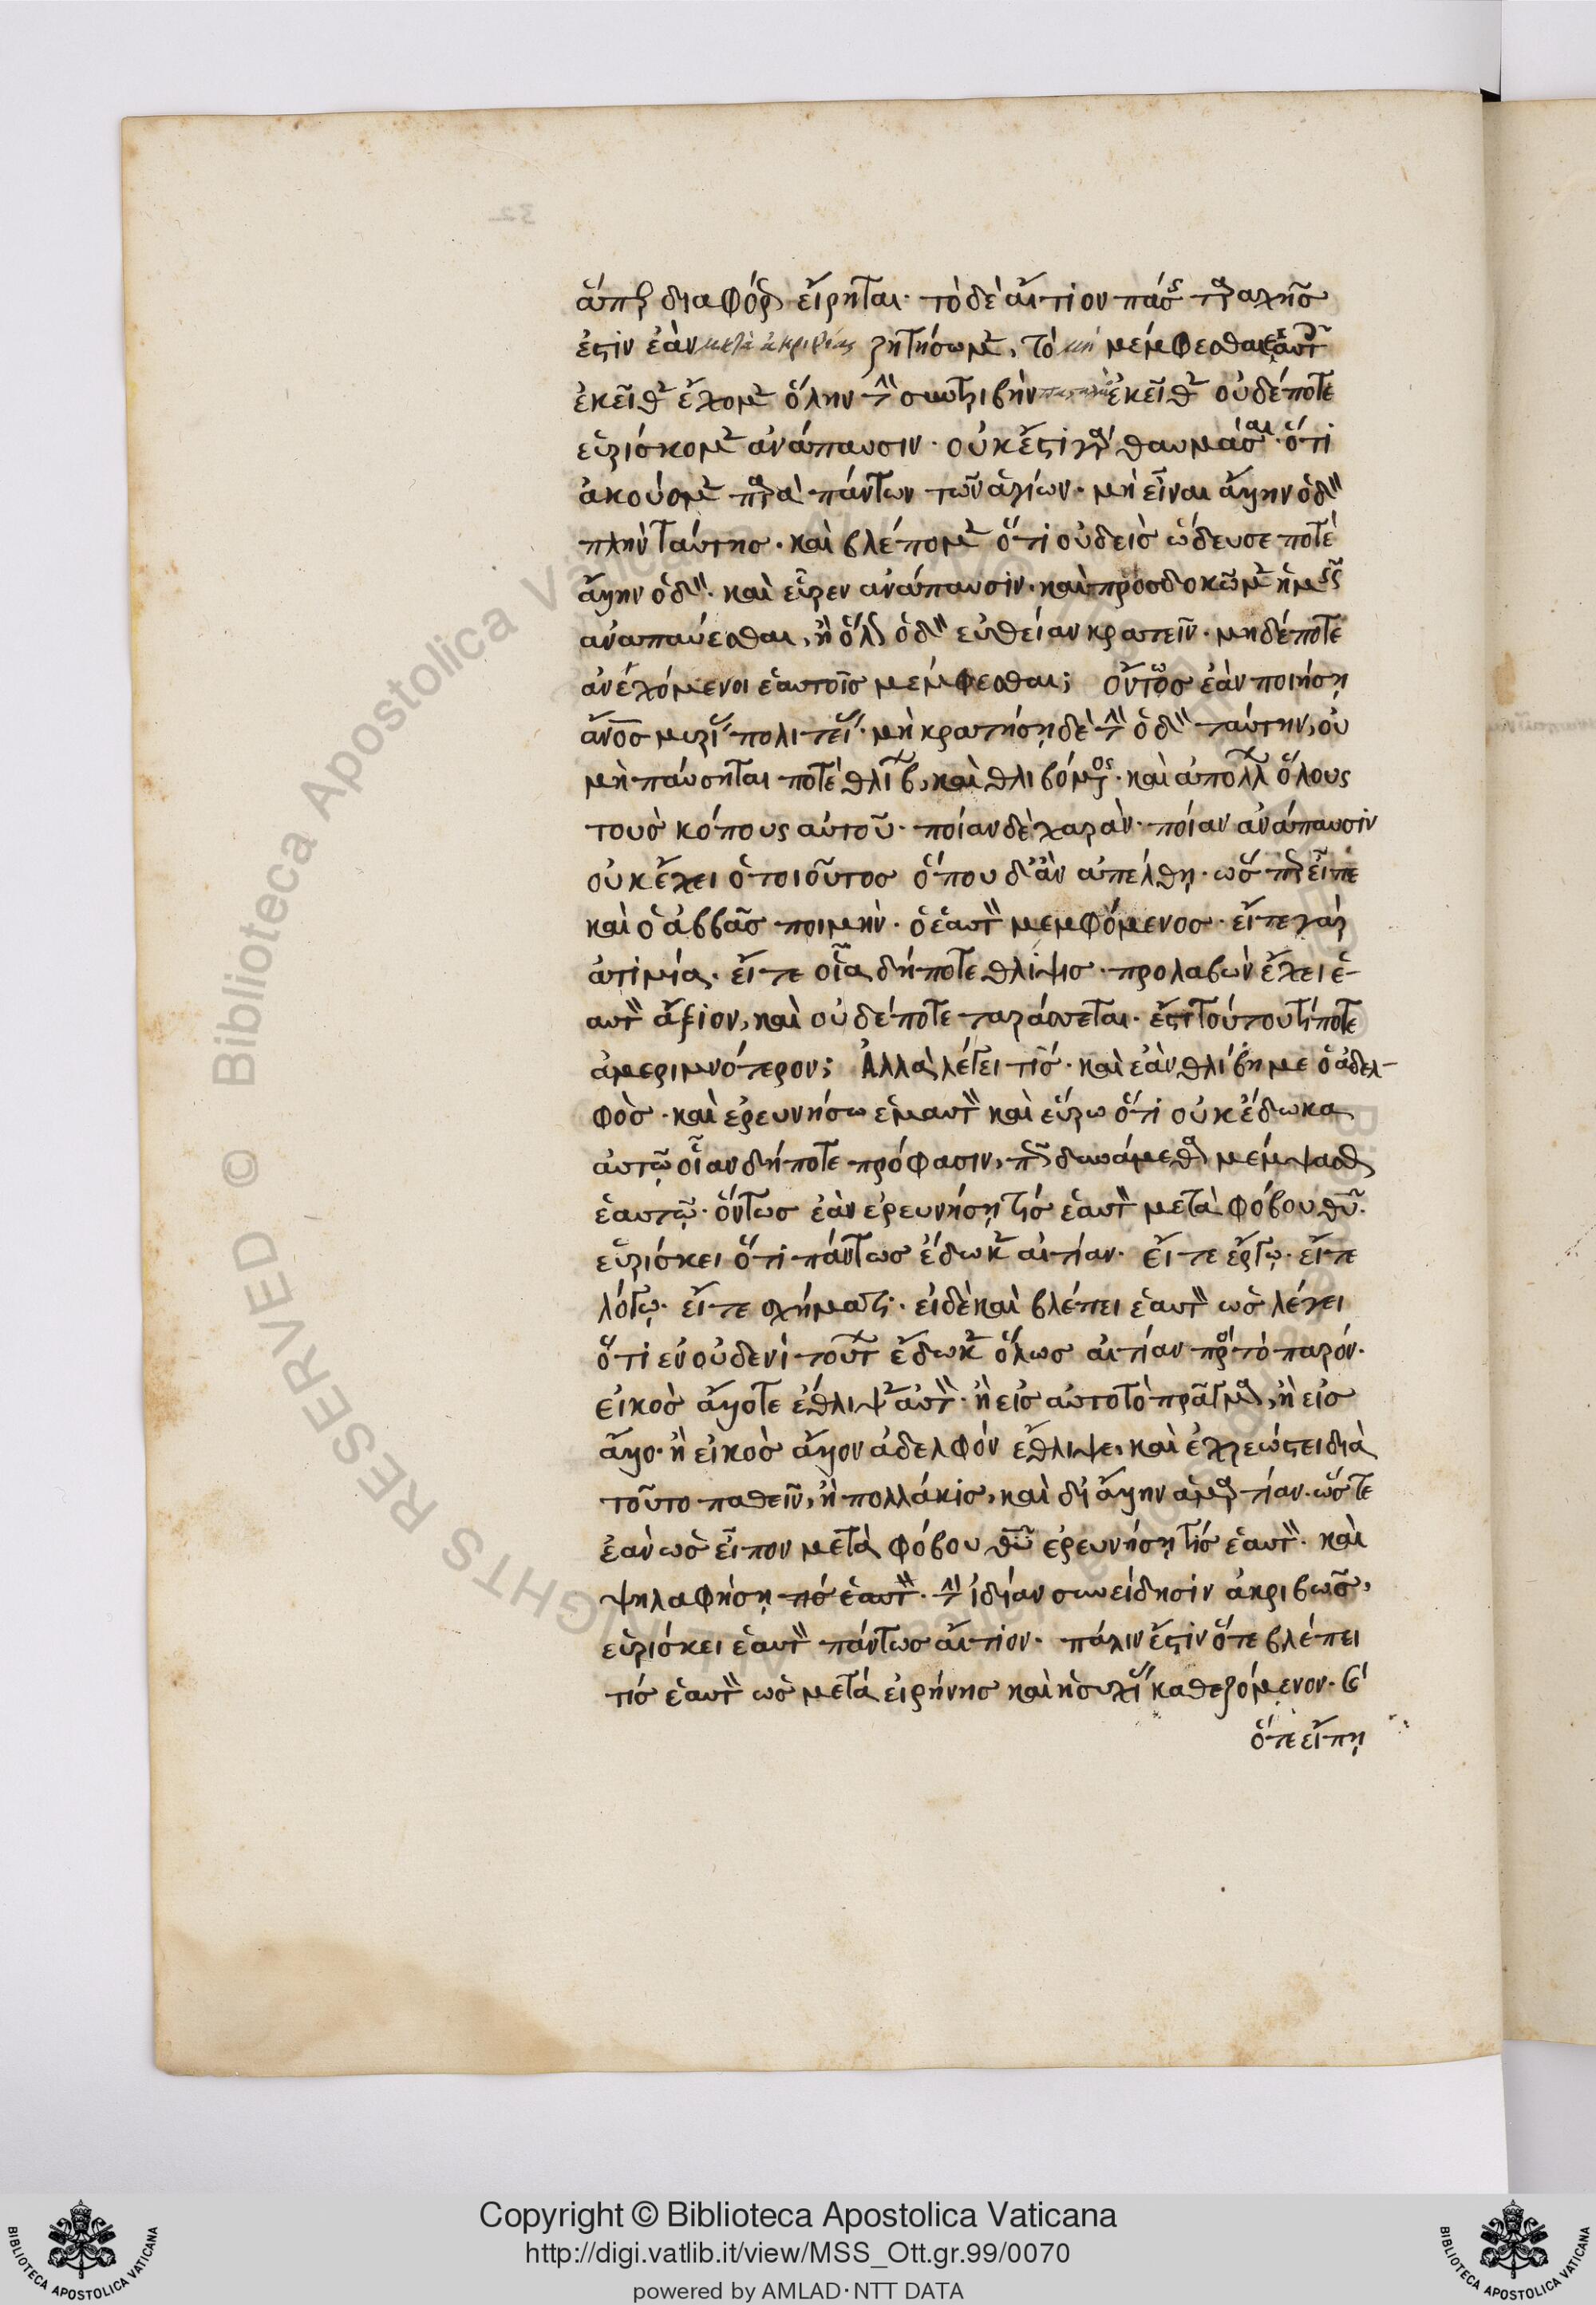 32
ἅπερ διαφόρως εἴρηται· τὸ δὲ αἴτιον πάσης ταραχῆς
ἐστὶν ἐὰν μετὰ ἀκριβείας ζητήσωμεν, τὸ μὴ μέμφεσθαι ἑαυτοὺς
ἐκεῖθεν ἔχομεν ὅλην τὴν συντριβὴν ἐκεῖθεν οὐδέποτε
εὑρίσκομεν ἀνάπαυσιν· οὐκ ἔστι γὰρ θαυμάσαι· ὅτι
ἀκούομεν παρὰ πάντων τῶν ἁγίων· μὴ εἶναι ἄλλην ὁδὸν
πλὴν ταύτης· καὶ βλέπομεν ὅτι οὐδεὶς ὥδευσε ποτὲ
ἄλλην ὁδὸν· καὶ εὗρεν ἀνάπαυσιν· καὶ προσδοκῶμεν ἡμεῖς
ἀναπαύεσθαι, ἢ ὅλως ὁδὸν εὐθεῖαν κρατεῖν· μηδέποτε
ἀνεχόμενοι ἑαυτοῖς μέμφεσθαι; οὕτως ἐὰν ποιήσῃ
ἄνος μυρί πολιτεί· μὴ κρατήσῃ δὲ τὴν ὁδὸν ταύτην, οὐ
μὴ παύσηται ποτὲ θλίβων, καὶ θλιβόμενος· καὶ ἀπολλύων ὅλους
τοὺς κόπους αὐτοῦ· ποίαν δὲ χαρὰν· ποίαν ἀνάπαυσιν
οὐκ ἔχει ὁ τοιοῦτος ὅπου δ' ἂν ἀπέλθῃ· ὥσπερ εἶπε
καὶ ὁ ἀββᾶς ποιμὴν· ὁ ἑαυτὸν μεμφόμενος· εἴτε γὰρ
ἀτιμία· εἴτε οἵα δήποτε θλίψις· προλαβὼν ἔχει ἑ-
αυτὸν ἄξιον, καὶ οὐδέποτε ταράσσεται· ἔστι τούτου τίποτε
ἀμεριμνότερον; Ἀλλὰ λέγει τίς· καὶ ἐὰν θλίβῃ με ὁ ἀδελ-
φὸς· καὶ ἐρευνήσω ἐμαυτὸν καὶ εὕρω ὅτι οὐκ ἔδωκα
αὐτῷ οἵαν δήποτε πρόφασιν, πῶς δυνάμεθα μέμψασθαι
ἑαυτῷ· ὄντως ἐὰν ἐρευνήσῃ τίς ἑαυτὸν μετὰ φόβου θῦ.
εὑρίσκει ὅτι πάντως ἔδωκεν αἰτίαν· εἴτε ἔργῳ· εἴτε
λόγῳ· εἴτε σχήματι· εἰ δὲ καὶ βλέπει ἑαυτὸν ὡς λέγει
ὅτι ἐν οὐδενὶ τούτων ἔδωκεν ὅλως αἰτίαν πρὸς τὸ παρόν·
εἰκὸς ἄλλοτε ἔθλιψεν αὐτὸν· ἢ εἰς αὐτὸ τὸ πρᾶγμα, ἢ εἰς
ἄλλο· ἢ εἰκὸς ἄλλον ἀδελφόν ἔθλιψε, καὶ ἐχρεώστει διὰ
τοῦτο παθεῖν, ἢ πολλάκις, καὶ δι' ἄλλην ἁμαρτίαν· ὥστε
ἐὰν ὡς εἶπον μετὰ φόβου θῦ ἐρευνήσῃ τίς ἑαυτὸν· καὶ
ψηλαφήσῃ τίς ἑαυτὸν· τὴν ἰδίαν συνείδησιν ἀκριβῶς,
εὑρίσκει ἑαυτὸν πάντως αἴτιον· πάλιν ἔστιν ὅτε βλέπει
τίς ἑαυτὸν ὡς μετὰ εἰρήνης καὶ ἡσυχί καθεζόμενον· καὶ
ὅτε εἴπῃ
© Biblioteca Apostolica Vaticana
ALL RIGHTS RESERVED
Copyright © Biblioteca Apostolica Vaticana
http://digi.vatlib.it/view/MSS_Ott.gr.99/0070
powered by AMLAD·NTT DATA
BIBLIOTECA APOSTOLICA VATICANA
BIBLIOTECA APOSTOLICA VATICANA